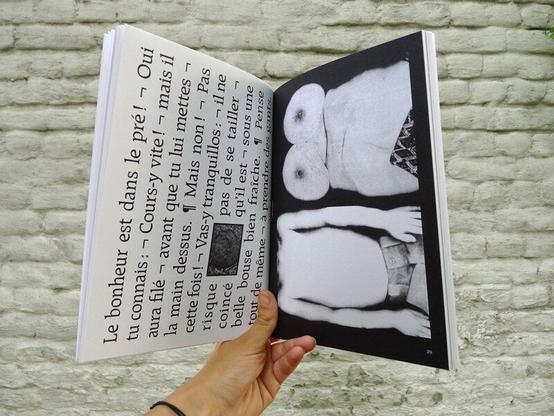 Le bonheur est dans le pré ! ¬ Oui
tu connais : ¬ Cours-y vite ! ¬ mais il
aura filé ¬ avant que tu lui mettes ¬
la main dessus. ¶ Mais non ! ¬ Pas
cette fois ! ¬ Vas-y tranquillos : ¬ il ne
risque pas de se tailler ¬
coincé qu'il est ¬ sous une
belle bouse bien fraîche. ¶ Pense
tout de même ¬ à prendre des gants.
29